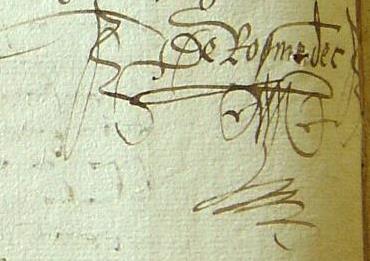 De Rosmadec